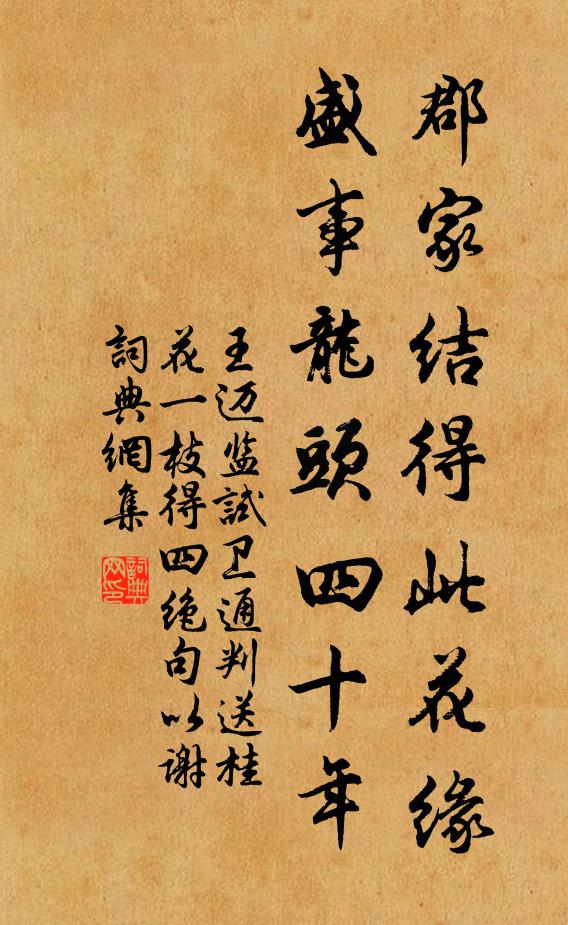 郡家结得此花缘
盛事龍頭四十年
王迈监試卫通判送桂
花一枝得四绝句以谢
詞典網集
詞典网印